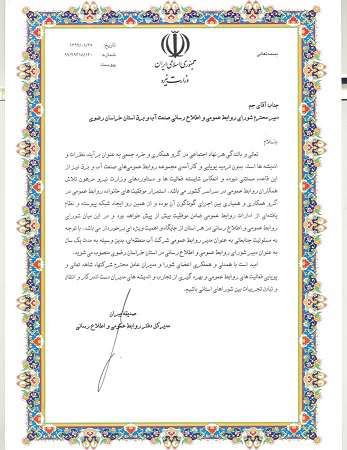 بسمه‌تعالی
جمهوری اسلامی ایران
وزارت نیرو
تاریخ:
شماره:
پیوست:
جناب آقای جم
دبیر محترم شورای روابط عمومی و اطلاع رسانی صنعت آب و برق استان خراسان رضوی
با سلام
تعالی و بالندگی هر نهاد اجتماعی در گرو همکاری و خرد جمعی به عنوان برآیند، نظرات و
اندیشه ها است. بدون تردید پویایی و کارآمدی مجموعه روابط عمومی‌های صنعت آب و برق نیز از
این قاعده مستثنی نبوده و انعکاس شایسته فعالیت ها و دستاوردهای وزارت نیرو مرهون تلاش
همکاران روابط عمومی در سراسر کشور می باشد. استمرار موفقیت های خانواده روابط عمومی در
گرو همکاری و همیاری بین اجزای گوناگون آن بوده و از همین رو ایجاد شبکه پیوسته و نظام
یافته‌ای از ادارات روابط عمومی ضامن موفقیت بیش از پیش خواهد بود و در این میان شورای
روابط عمومی و اطلاع رسانی در هر استان از جایگاه و اهمیت ویژه ای برخوردار می باشد. با توجه
به مسئولیت جنابعالی به عنوان مدیر روابط عمومی شرکت آب منطقه‌ای، بدین وسیله به مدت یک سال
به عنوان دبیر شورای روابط عمومی و اطلاع رسانی در استان خراسان رضوی منصوب می شوید.
امید است با همدلی و همفکری اعضای شورا و مدیران عامل محترم شرکتها، شاهد تعالی و
پویایی فعالیت های روابط عمومی و بهره گیری از تجارب و اندیشه های مدیران دست اندرکار و انتقال
و تبادل تجربیات بین شوراهای استانی باشیم.
مدیر کل دفتر روابط عمومی و اطلاع رسانی